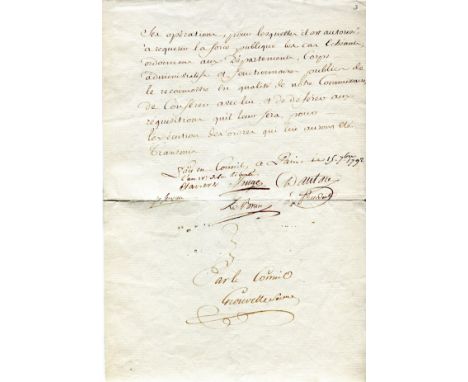 3
Ses opérations, pour lesquelles il est autorisé
à requérir la force publique les cas Echeant
ordonnons aux Départements, Corps
administratifs et fonctionnaires publics de
le reconnoitre en qualité de notre Commissaire
de Conférer avec lui et de déférer aux
requisitions qu'il leur fera, pour
l'exécution des ordres qui lui auront été
Transmis
fait en Conseil, à Paris, le 15. 7bre 1792
l'an 4e de la liberté
Claviere Monge Danton
Le Brun
Par le Conseil
Grouvelle